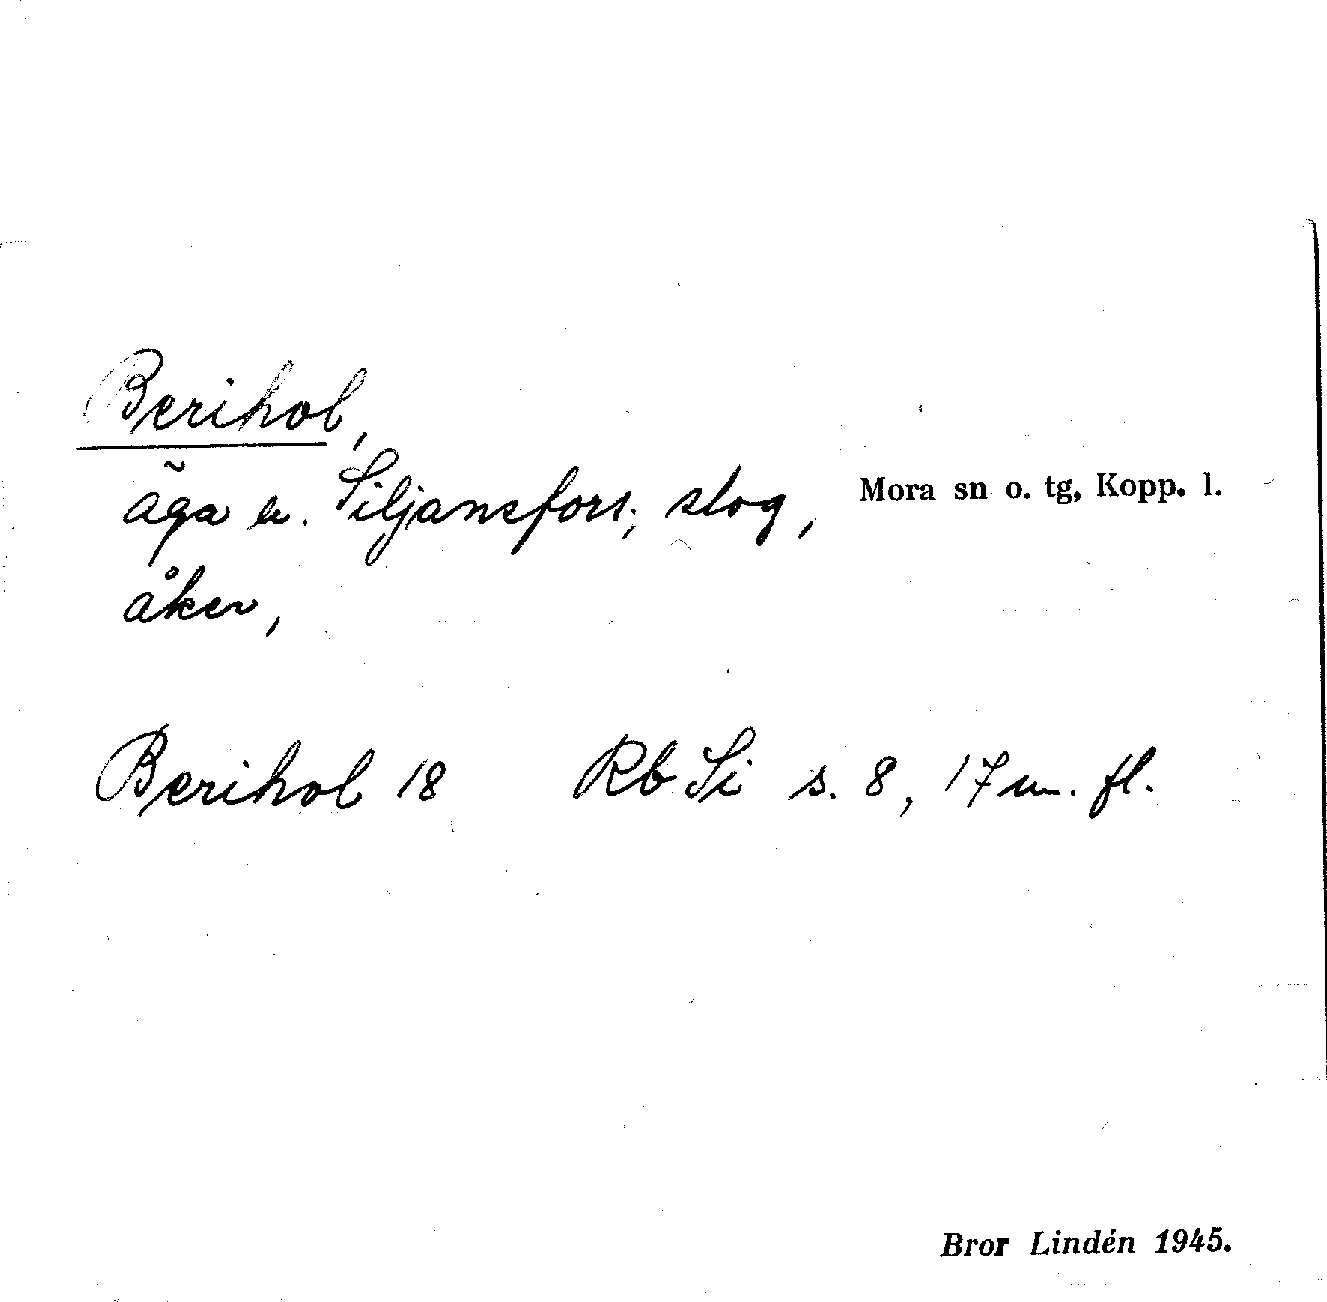 Berihol,
äga u. Siljansfors; slog,
Mora sn o. tg, Kopp. l.
åker,
Berihol 18 Rb Si s. 8, 17 m. fl.
Bror Lindén 1945.